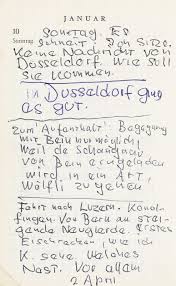 JANUAR
10
Sonntag
Sonntag.
Schneit
Keine Nachricht von
Düsseldorf. Wie soll
sie kommen.
in Düsseldorf ging
es gut.
Zum Aufenthalt: Begegnung
mit Bein unmöglich,
weil der
von Bern eingeladen
wird in ein Art,
Wölfli zu gehen
Fahrt nach Luzern.
Von Bern an stei-
gende Neugierde. Erstes
wie ich
K. sehe welches
Nast. Vor allem
2 April